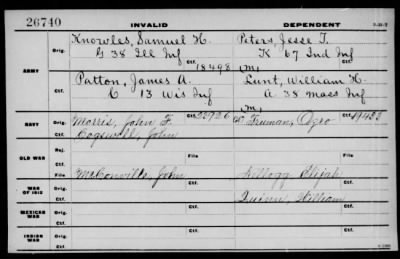 26740 INVALID DEPENDENT
Knowles, Samuel H. Peters, Jesse T.
Orig. G 38 Ill Inf K 67 Ind Inf
Ctf. 18498 Ctf.
ARMY
Patton, James A. Lunt, William H.
Orig. C 13 Wis Inf A 38 Mass Inf
Ctf. Ctf.
NAVY Orig. Morris, John F. Ctf. 22926 Truman, Ozro Ctf. 19422
Cogswell, John
OLD WAR Rej.
Ctf. File File
WAR OF 1812 Orig. McConville, John Kellogg Elijah
Ctf. Ctf. Quinn, William
MEXICAN WAR Orig.
Ctf. Ctf.
INDIAN WAR Orig.
Ctf. Ctf.